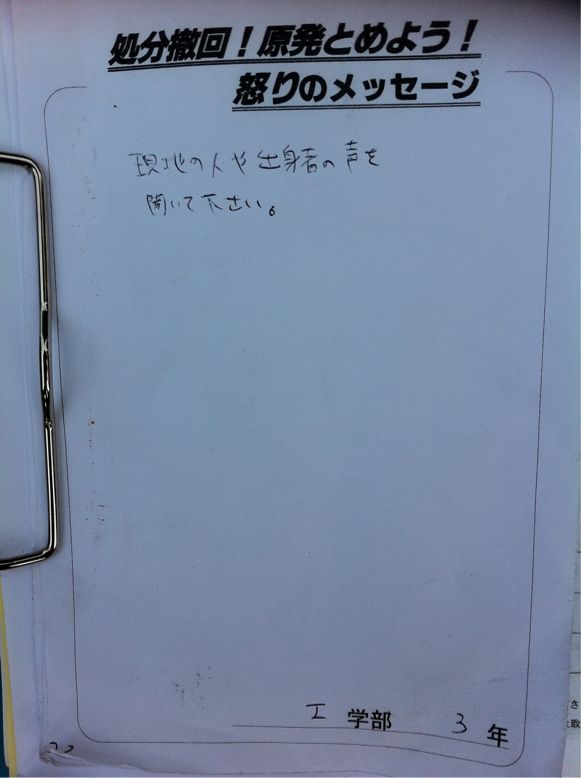 処分撤回！原発とめよう！
怒りのメッセージ
現地の人や出身者の声を
聞いて下さい。
工 学部 3 年